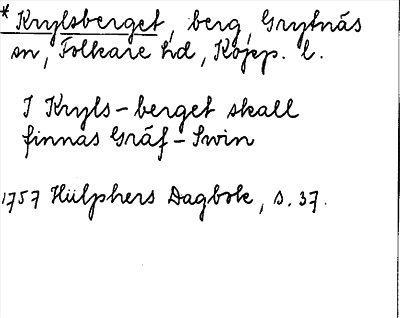 * Krylsberget, berg, Grytnäs
sn, Folkare hd, Kopp. l.
I Kryls-berget skall
finnas Gräf-Swin
1757 Hülphers Dagbok, s. 37.